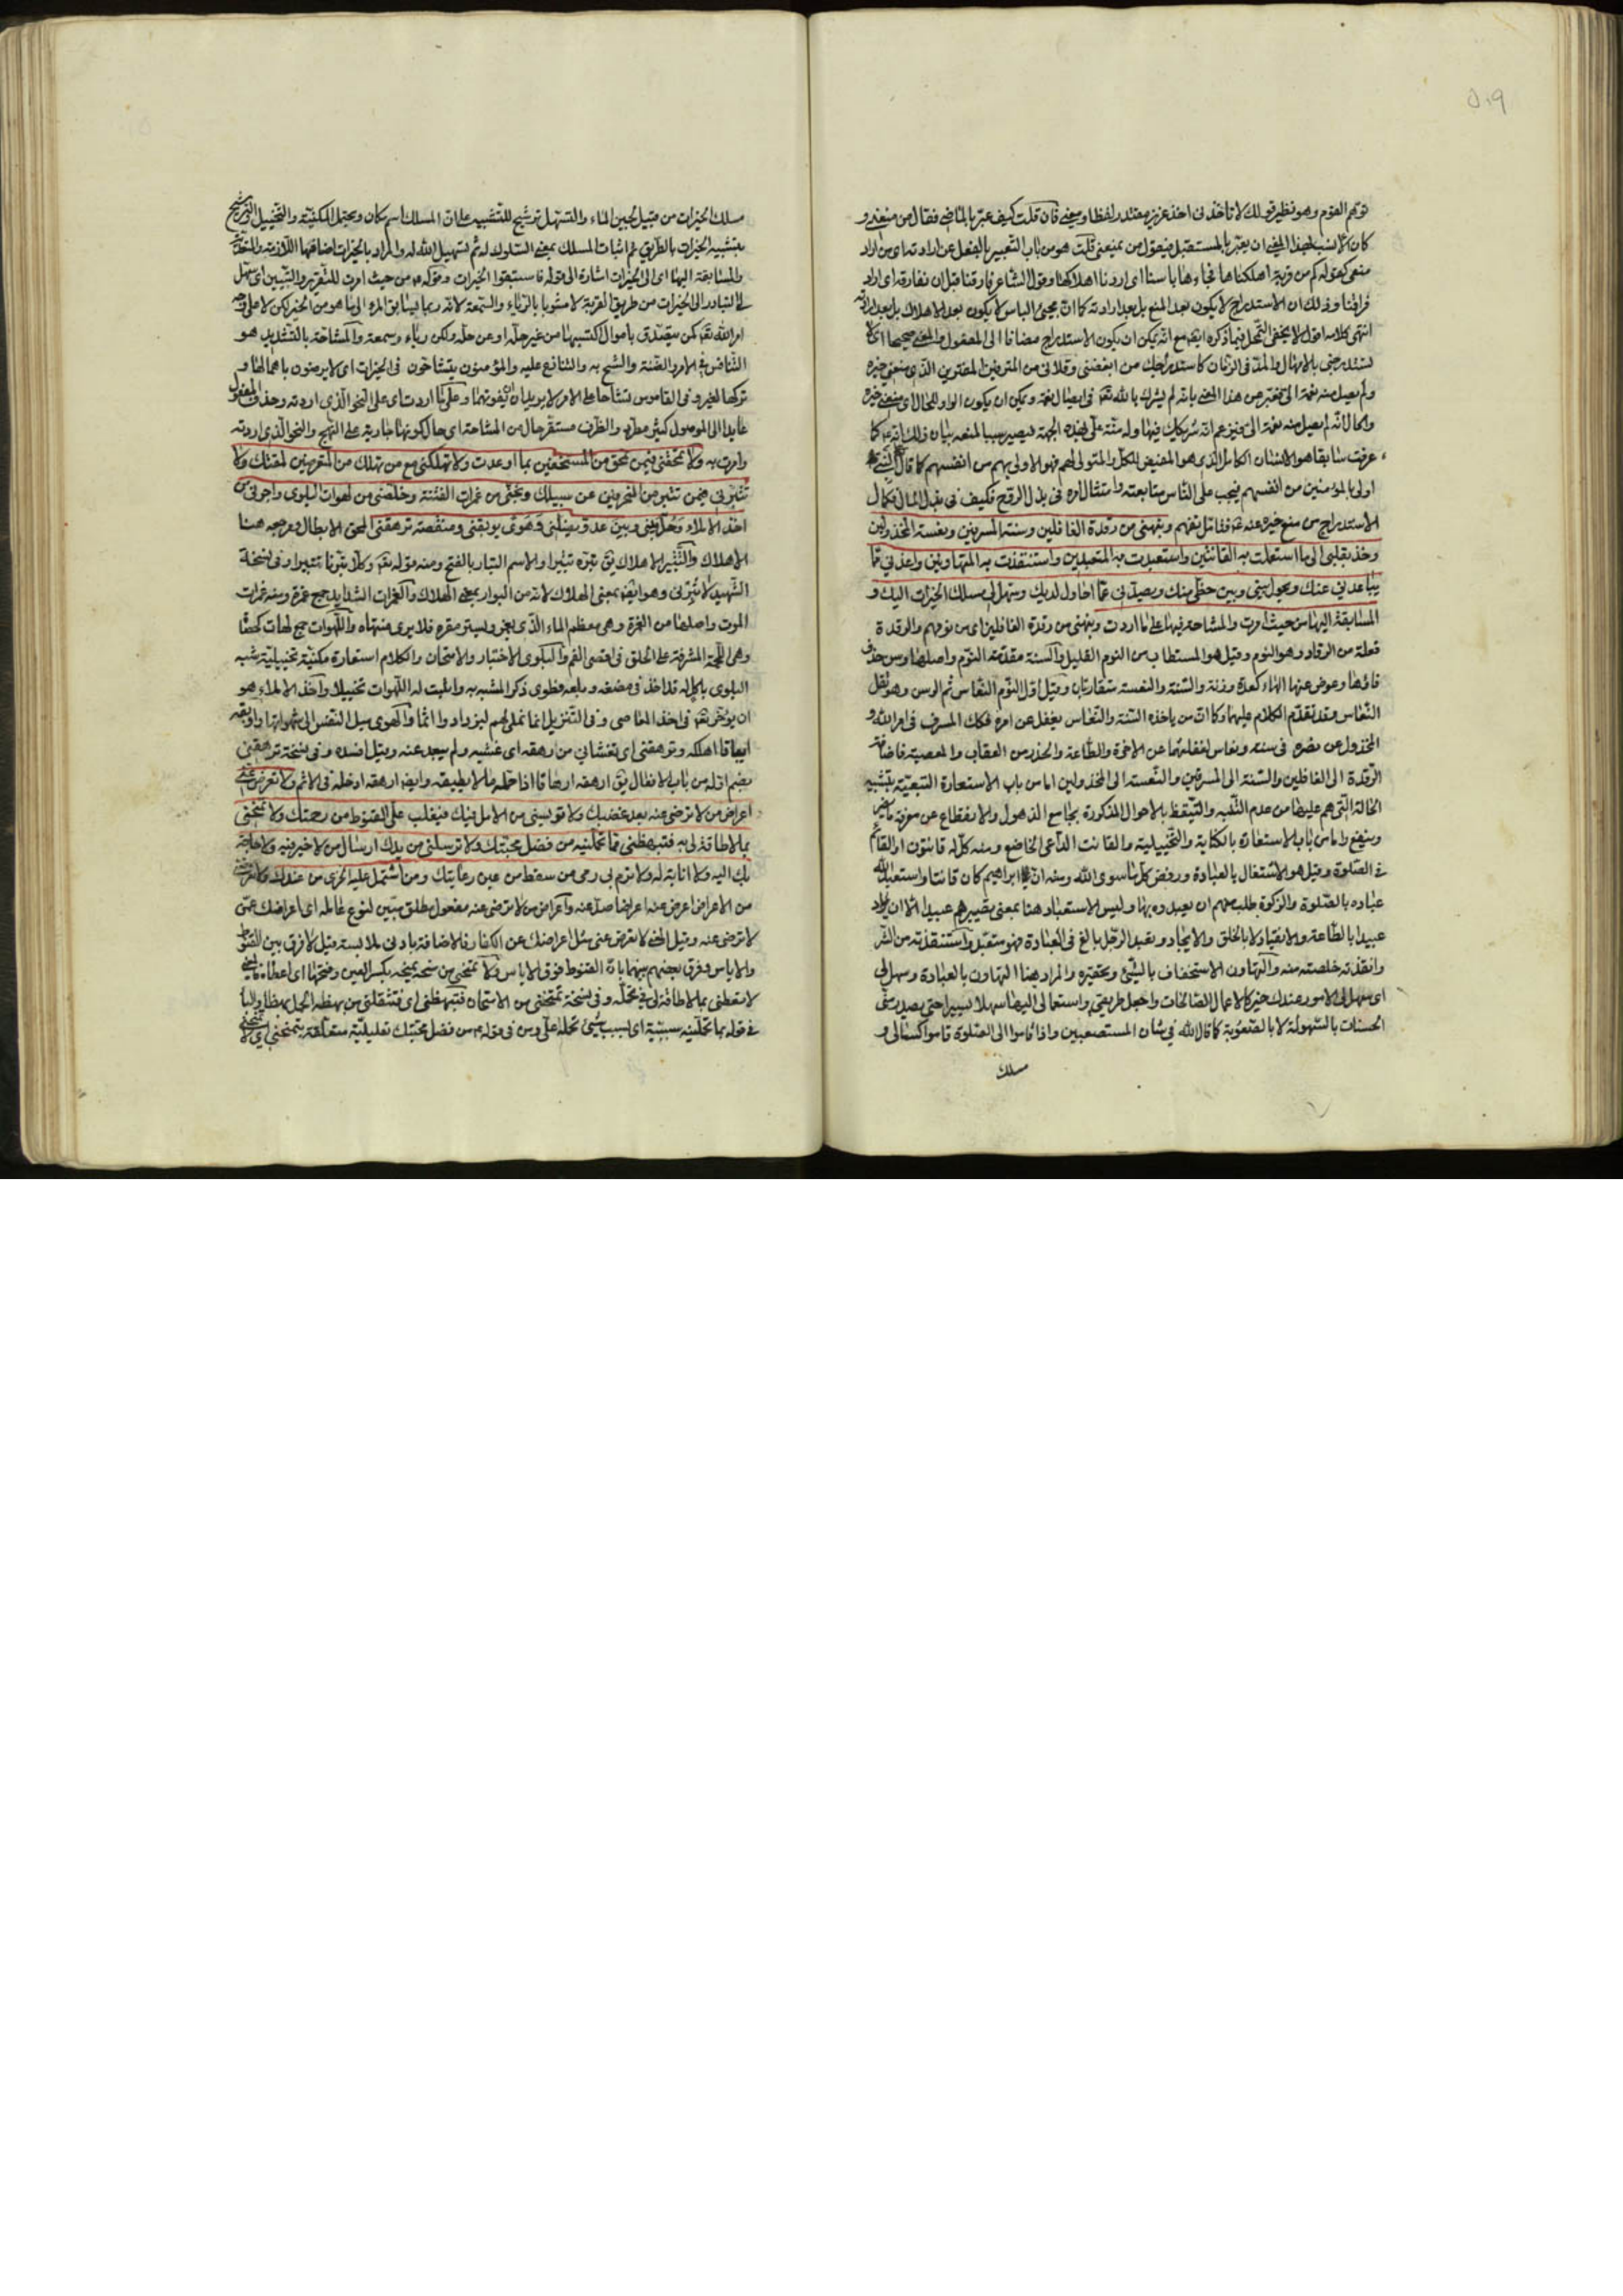 ٥٠٩
توهم القوم وهو نظير قولك لا تأخذني اخذ عزيز مقتدر لفظا ومعنى فان قلت كيف عبر بالماضي فقال من منعني و
كان الانسب لهذا المعنى ان يعبر بالمستقبل فيقول من يمنعني قلت هو من باب التعبير بالفعل عن ارادته اي من اراد
منعي كقوله كم من قرية اهلكناها فجاءها باسنا اي اردنا اهلاكها وقول الشاعر فارقنا قبل ان نفارقه اي اراد
فراقنا وذلك ان الاستدراج لا يكون بعد المنع بل بعد ارادته كما ان مجئ الباس لا يكون بعد الاهلاك بل بعد ارادته
انتهى كلامه اقول لا يخفى التمحل فيما ذكره ايضا مع انه يمكن ان يكون الاستدراج مضافا الى المفعول والمعنى صحيحا اي لا
تستدرجني بالامهال والمدة في الزمان كاستدراجك من ابغضني وقلاني من المترفين الذي منعني خيره
ولم يصل منه نعمة الي
والحال انه لم يصل منه نعمة الي
عرفت سابقا هو الانسان الكامل الذي هو المفيض للكل والمتولي لهم فهو الاولى بهم من انفسهم كما قال النبي
اولى بالمؤمنين من انفسهم فيجب على الناس متابعته وامتثال امره في بذل الروح فكيف في بذل المال فكمال
الاستدراج من منع خيره عنه فتامل تفهم ونبهني من رقدة الغافلين وسنة المسرفين ونعسة المخذولين
وخذ بقلبي الى ما استعملت به القانتين واستعبدت به المتعبدين واستنقذت به المتهاونين واعذني مما
يباعدني عنك ويحول بيني وبين حظي منك ويصدني عما احاول لديك وسهل لي مسلك الخيرات اليك و
المسابقة اليها من حيث امرت والمشاحة فيها على ما اردت ونبهني من رقدة الغافلين اي من نومهم والرقدة
فعلة من الرقاد وهو النوم وقيل هو المستطاب من النوم القليل والسنة مقدمة النوم واصلها وسن حذف
فاؤها وعوض عنها الهاء كعدة وزنة والسنة والنعسة متقاربتان وقيل اول النوم النعاس ثم الوسن وهو ثقل
النعاس وقد تقدم الكلام عليهما وكما ان من ياخذه السنة والنعاس يغفل عن امره فكك المسرف في امر الله و
المخذول عن نصره في سنة ونعاس لغفلتهما عن الاخرة والطاعة والحذر من العقاب والمعصية فاضافة
الرقدة الى الغافلين والسنة الى المسرفين والنعسة الى المخذولين اما من باب الاستعارة التبعية بتشبيه
الحالة التي هم عليها من عدم التنبه والتيقظ بالاحوال المذكورة بجامع الذهول والانقطاع عن معرفة ما يضر
وينفع واما من باب الاستعارة بالكناية والتخييلية والقانت الداعي الخاضع ومنه كل له قانتون او القائم
في الصلوة وقيل هو الاشتغال بالعبادة ورفض كل ما سوى الله ومنه ان ابراهيم كان قانتا واستعبد الله
عباده بالصلوة والزكوة طلب منهم ان يعبدوه بها وليس الاستعباد هنا بمعنى تصييرهم عبيدا الا ان يراد
عبيدا بالطاعة والانقياد لا بالخلق والايجاد وتعبد الرجل بالغ في العبادة فهو متعبد واستنقذته من الشر
وانقذته خلصته منه والتهاون الاستخفاف بالشئ وتحقيره والمراد هنا التهاون بالعبادة وسهل لي
اي سهل لي الامور عندك خير كالاعمال الصالحات واجعل طريقتي واستعمالي اليها سهلا يسيرا حتى يصدر مني
الحسنات بالسهولة لا بالصعوبة كما قال الله في شان المستصعبين واذا قاموا الى الصلوة قاموا كسالى و
مسلك
مسلك الخيرات من قبيل لجين الماء والتسهيل ترشيح للتشبيه على ان المسلك اسم مكان ويحتمل المكنية والتخييل والترشيح
بتشبيه الخيرات بالطريق ثم اثبات المسلك بمعنى السلوك له ثم تسهيل الله له والمراد بالخيرات اضافتها اللازمة والمتعدية
والمسابقة اليها اي الى الخيرات اشارة الى قوله فاستبقوا الخيرات وقوله من حيث امرت للتقرير والتبيين اي سهل
لي التبادر الى الخيرات من طريق القربة لا مشوبا بالرياء والسمعة لانه ربما يسابق المرء الى ما هو من الخير لكن لا على وجه
امر الله تعالى كمن يتصدق باموال اكتسبها من غير حله او من حله ولكن رياء وسمعة والمشاحة بالتشديد هو
التنافس في الامر والضنة والشح به والتنازع عليه والمؤمنون يتشاحون في الخيرات اي لا يرضون باهمالها و
تركها لغيره وفي القاموس تشاحا على الامر لا يريدان ان يفوتهما وعلى ما اردت اي على النحو الذي اردته وحذف المفعول
عايدا الى الموصول كثير مطرد والظرف مستقر حال من المشاحة اي حال كونها جارية على النهج والنحو الذي اردته
وامرت به ولا تمحقني فيمن تمحق من المستخفين بما اوعدت ولا تهلكني مع من تهلك من المتعرضين لمقتك ولا
تتبرني فيمن تتبر من المنحرفين عن سبيلك ونجني من غمرات الفتنة وخلصني من لهوات البلوى واجرني من
اخذ الاملاء وحل بيني وبين عدو يضلني وهوى يوبقني ومنقصة ترهقني المحق الابطال ومرجعه هنا
الاهلاك والتتبير الاهلاك يق تبره تتبيرا والاسم التبار بالفتح ومنه قوله تعالى وكلا تبرنا تتبيرا وفي نسخة
الشهيد لا تبرني وهو ايضا بمعنى الهلاك لانه من البوار بمعنى الهلاك والغمرات الشدايد جمع غمرة ومنه غمرات
الموت واصلها من الغمرة وهي معظم الماء الذي يغمر ويستر مقره فلا يرى منتهاه واللهوات جمع لهات كحصاة
وهي اللحمة المشرفة على الحلق في اقصى الفم والبلوى الاختبار والامتحان والكلام استعارة مكنية تخييلية شبه
البلوى باكل له قد اخذ في مضغه وبلعه فطوى ذكر المشبه به واثبت له اللهوات تخييلا واخذ الاملاء هو
ان يؤخر تعالى في اخذ المعاصي وفي التنزيل انما نملي لهم ليزدادوا اثما والهوى ميل النفس الى شهواتها واوبقه
ايباقا اهلكه وترهقني اي تغشاني من رهقه اي غشيه ولم يبعد عنه وقيل افسده وفي نسخة ترهقني
بضم اوله من باب الافعال يق ارهقه ارهاقا اذا حمله ما لا يطيقه وايضا ارهقه ادخله في الاثم ولا تعرض عني
اعراض من لا ترضى عنه بعد غضبك ولا تؤيسني من الامل فيك فيغلب علي القنوط من رحمتك ولا تمنحني
بما لا طاقة لي به فتبهظني مما تحملنيه من فضل محبتك ولا ترسلني من يدك ارسال من لا خير فيه ولا حاجة
بك اليه ولا انابة له ولا ترم بي رمي من سقط من عين رعايتك ومن اشتمل عليه الخزي من عندك ولا تعرض
من الاعراض اعرض عنه اعراضا صد عنه واعراض من لا ترضى عنه مفعول مطلق مبين لنوع عامله اي اعراضك عمن
لا ترضى عنه وقيل المعنى لا تعرض عني مثل اعراضك عن الكفار فالاضافة بادنى ملابسة قيل لا فرق بين القنوط
والاياس وفرق بعضهم بينهما بان القنوط فوق الاياس ولا تمنحني من منحه يمنحه بكسر العين وفتحها اي اعطاه والمعنى
لا تعطني بما لا طاقة لي في تحمله وفي نسخة تمتحني من الامتحان فتبهظني اي فتثقلني من بهظه الحمل بهظا والباء
في قوله بما تحملنيه سببية اي لسبب شئ تحمله علي ومن في قوله من فضل محبتك تعليلية متعلقة بتمنحني